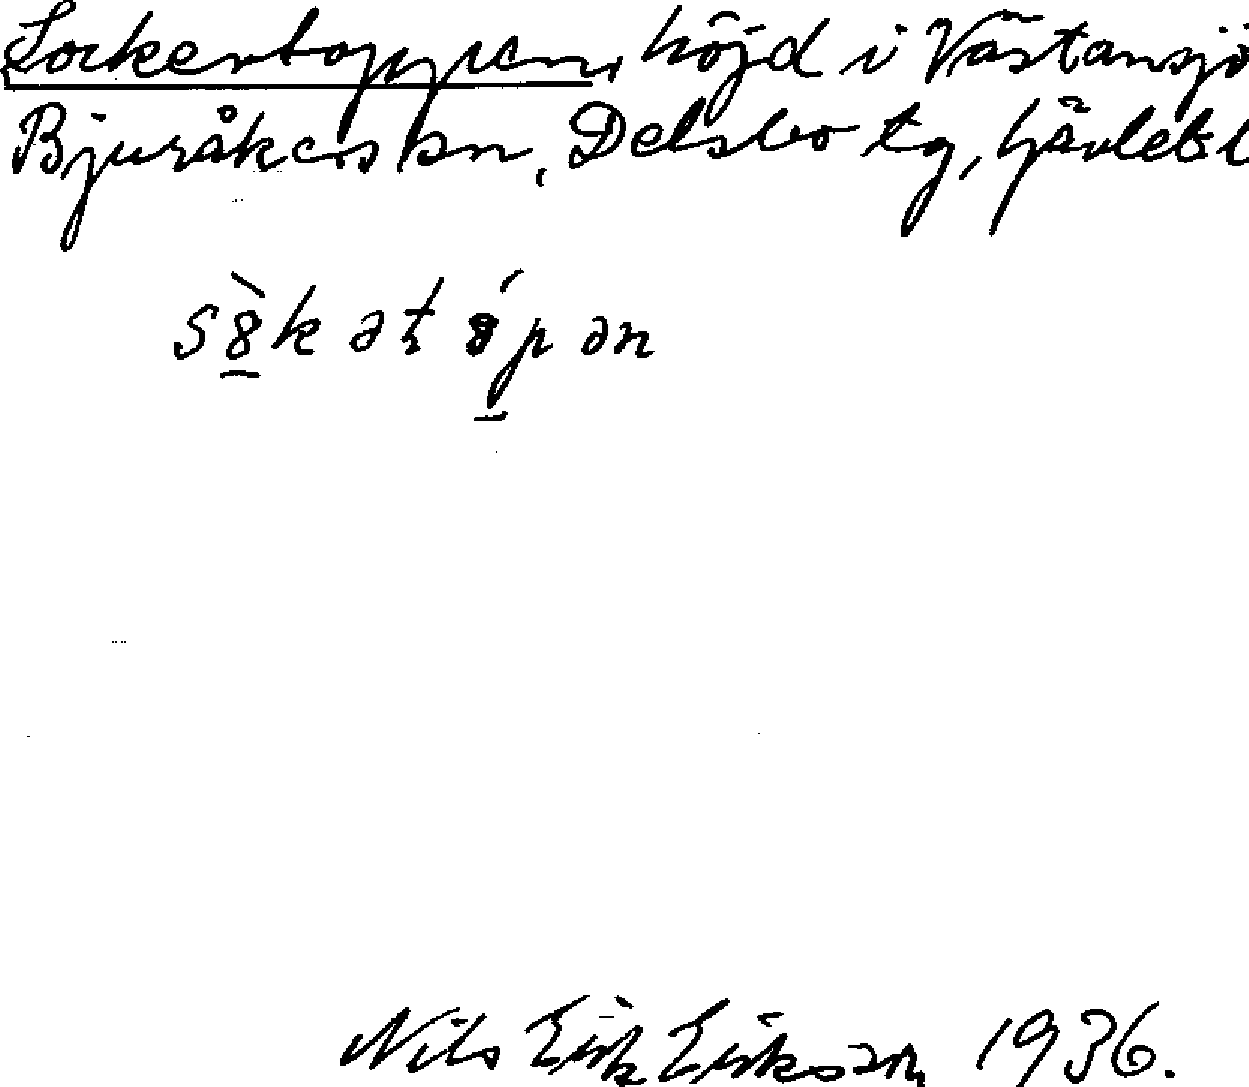 Sockertoppen, höjd i Västansjö
Bjuråkers sn, Delsbo tg, Gävlebl
s8̱̀kətȣ́pən
Nils Erik Eriksson 1936.